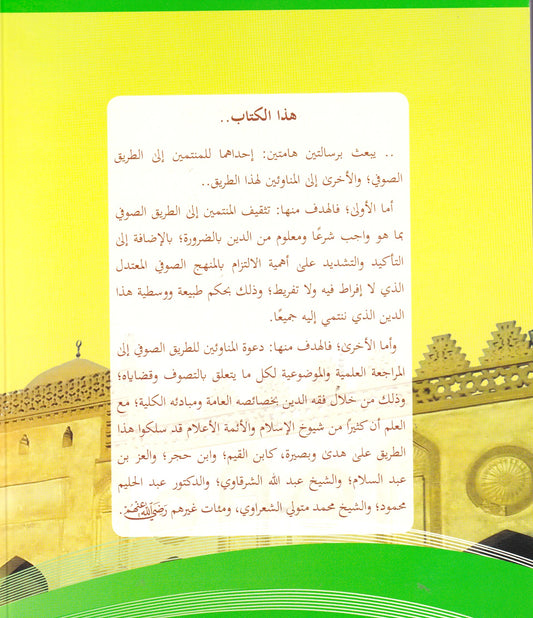 هذا الكتاب..
.. يبعث برسالتين هامتين: إحداهما للمنتمين إلى الطريق
الصوفي؛ والأخرى إلى المناوئين لهذا الطريق..
أما الأولى؛ فالهدف منها: تثقيف المنتمين إلى الطريق الصوفي
بما هو واجب شرعًا ومعلوم من الدين بالضرورة؛ بالإضافة إلى
التأكيد والتشديد على أهمية الالتزام بالمنهج الصوفي المعتدل
الذي لا إفراط فيه ولا تفريط؛ وذلك بحكم طبيعة ووسطية هذا
الدين الذي ننتمي إليه جميعًا.
وأما الأخرى؛ فالهدف منها: دعوة المناوئين للطريق الصوفي إلى
المراجعة العلمية والموضوعية لكل ما يتعلق بالتصوف وقضاياه؛
وذلك من خلال فقه الدين بخصائصه العامة ومبادئه الكلية؛ مع
العلم أن كثيرًا من شيوخ الإسلام والأئمة الأعلام قد سلكوا هذا
الطريق على هدى وبصيرة، كابن القيم؛ وابن حجر؛ والعز بن
عبد السلام؛ والشيخ عبد الله الشرقاوي؛ والدكتور عبد الحليم
محمود؛ والشيخ محمد متولي الشعراوي، ومئات غيرهم رَضِيَ اللهُ عَنْهُمْ.